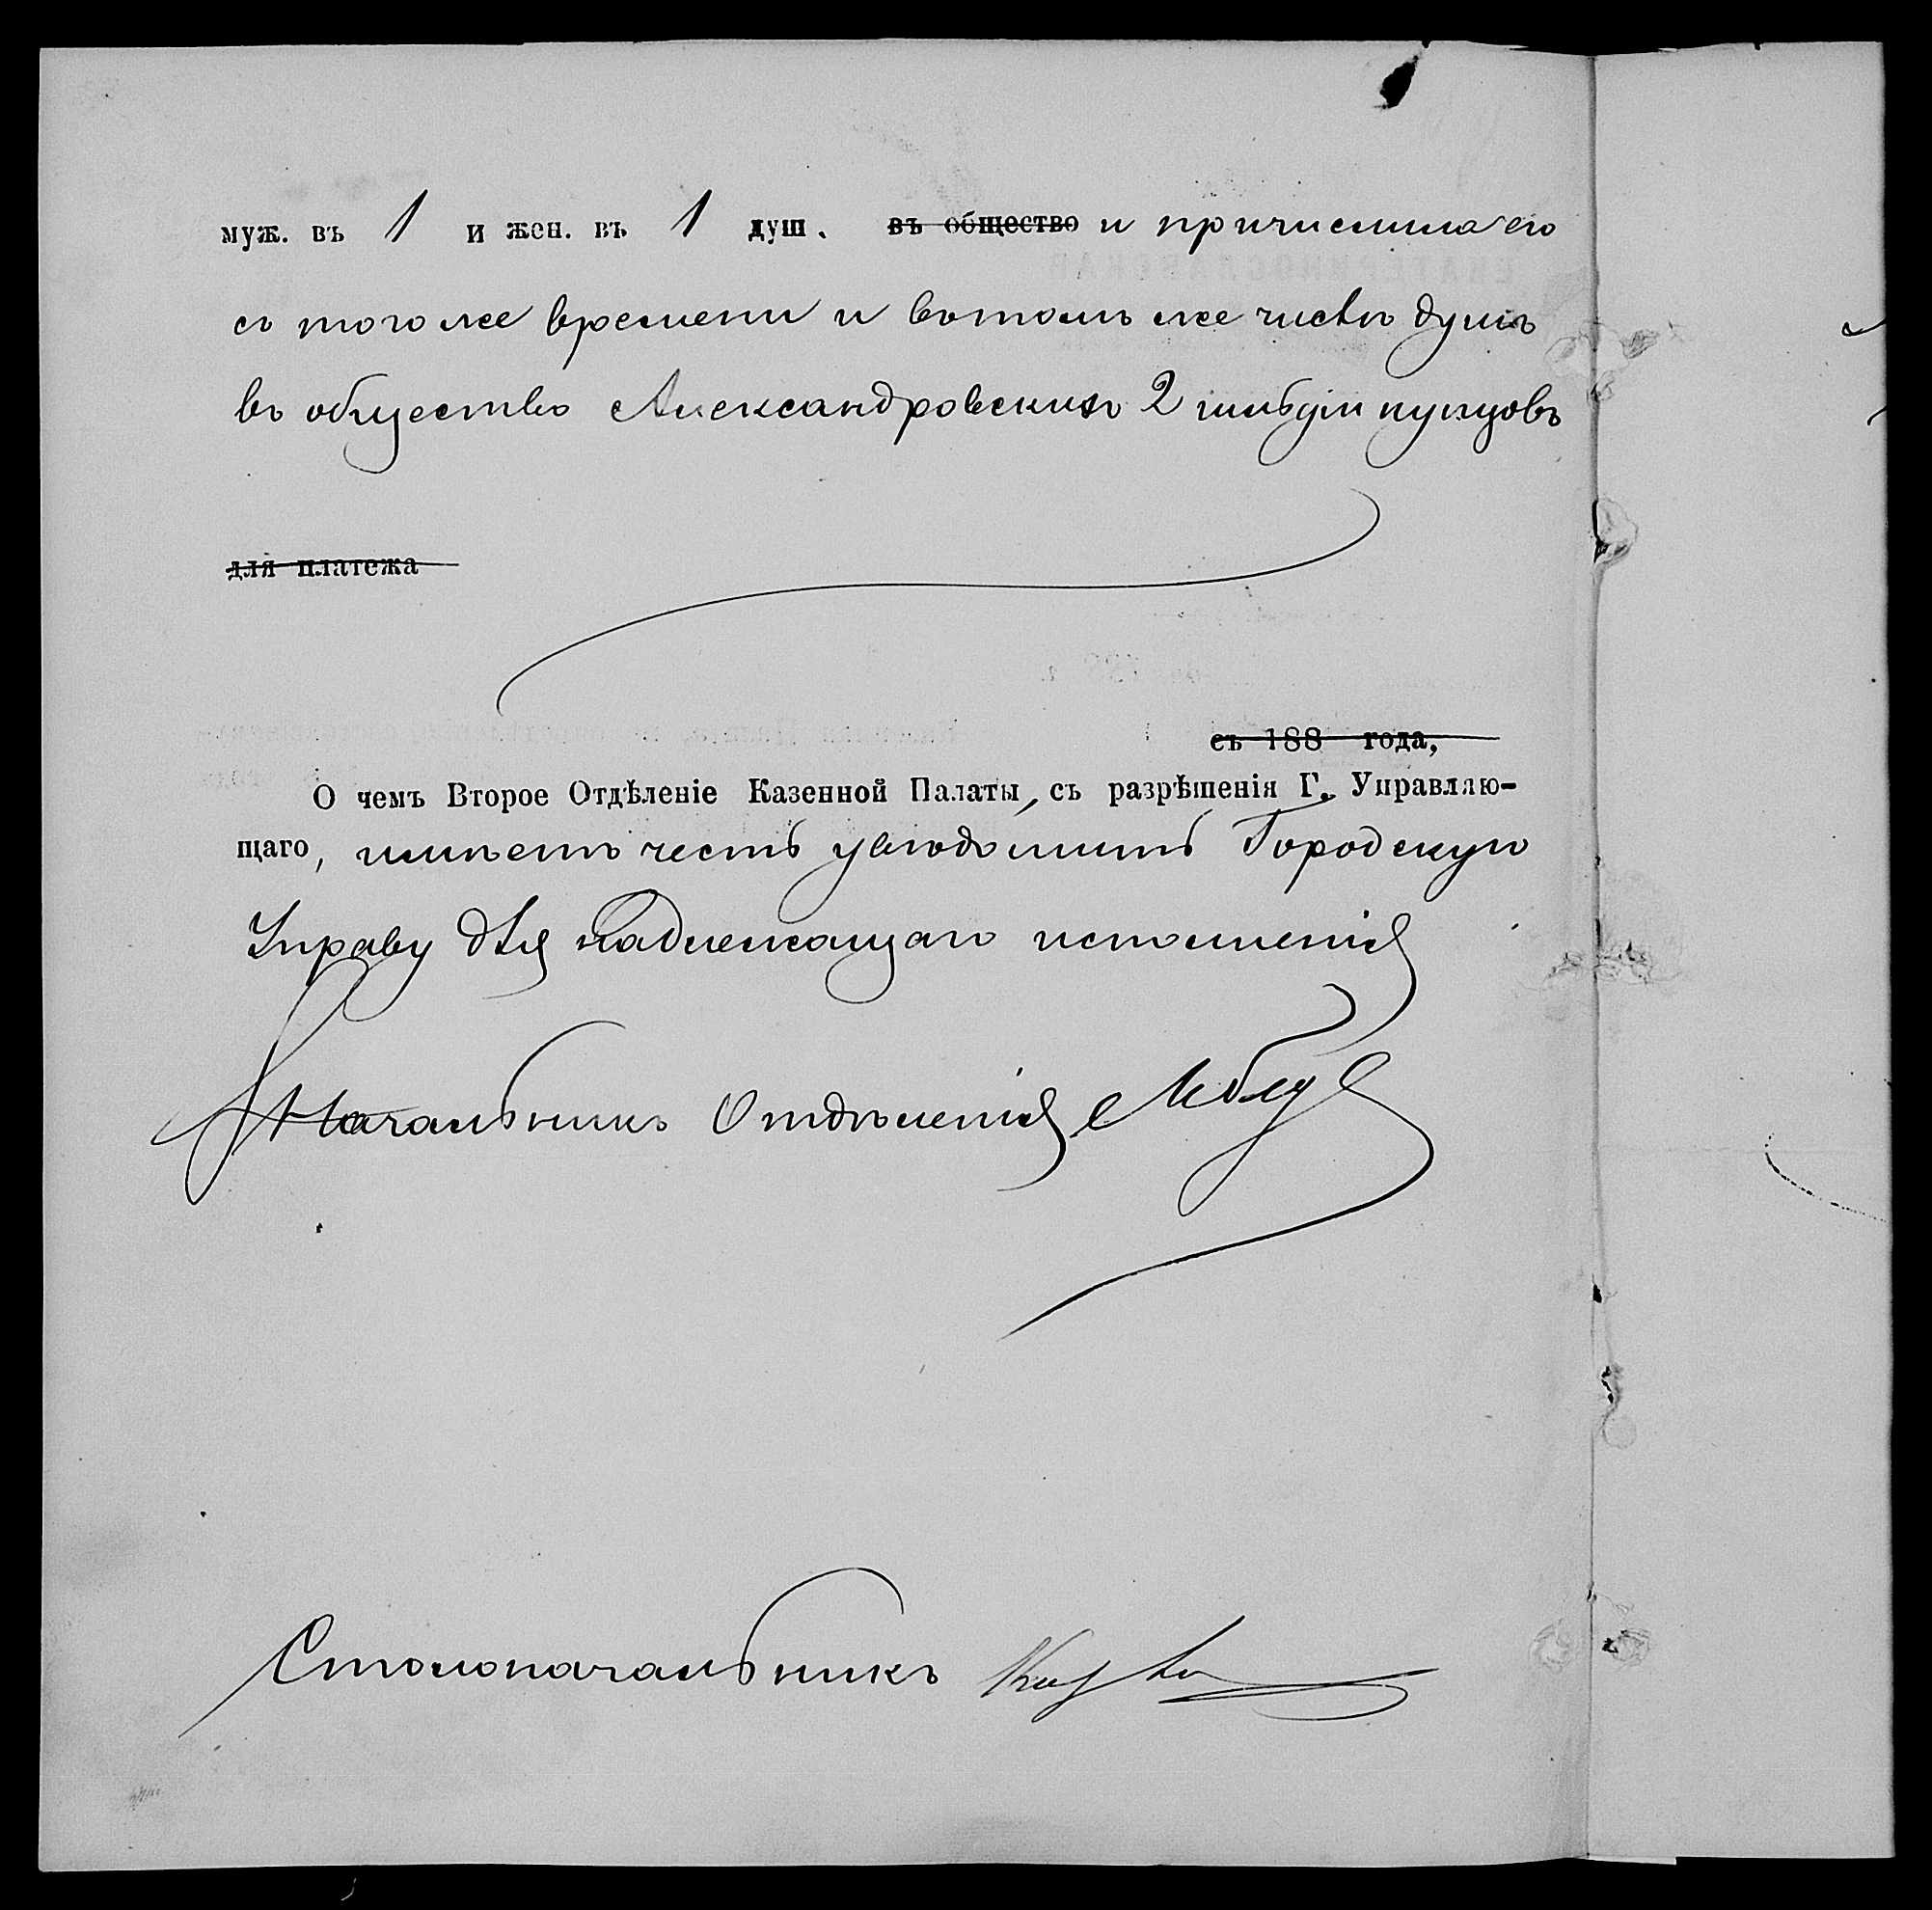 муж. въ 1 и жен. въ 1 душ. въ общество и причислила его
съ того же времени и въ томъ же числѣ душъ
въ общество Александровскихъ 2 гильдіи купцовъ
для платежа
съ 188 года,
О чемъ Второе Отдѣленіе Казенной Палаты, съ разрѣшенія Г. Управляю-
щаго, имѣетъ честь увѣдомить Городскую
Управу для надлежащаго исполненія
Начальникъ Отдѣленія
Столоначальникъ